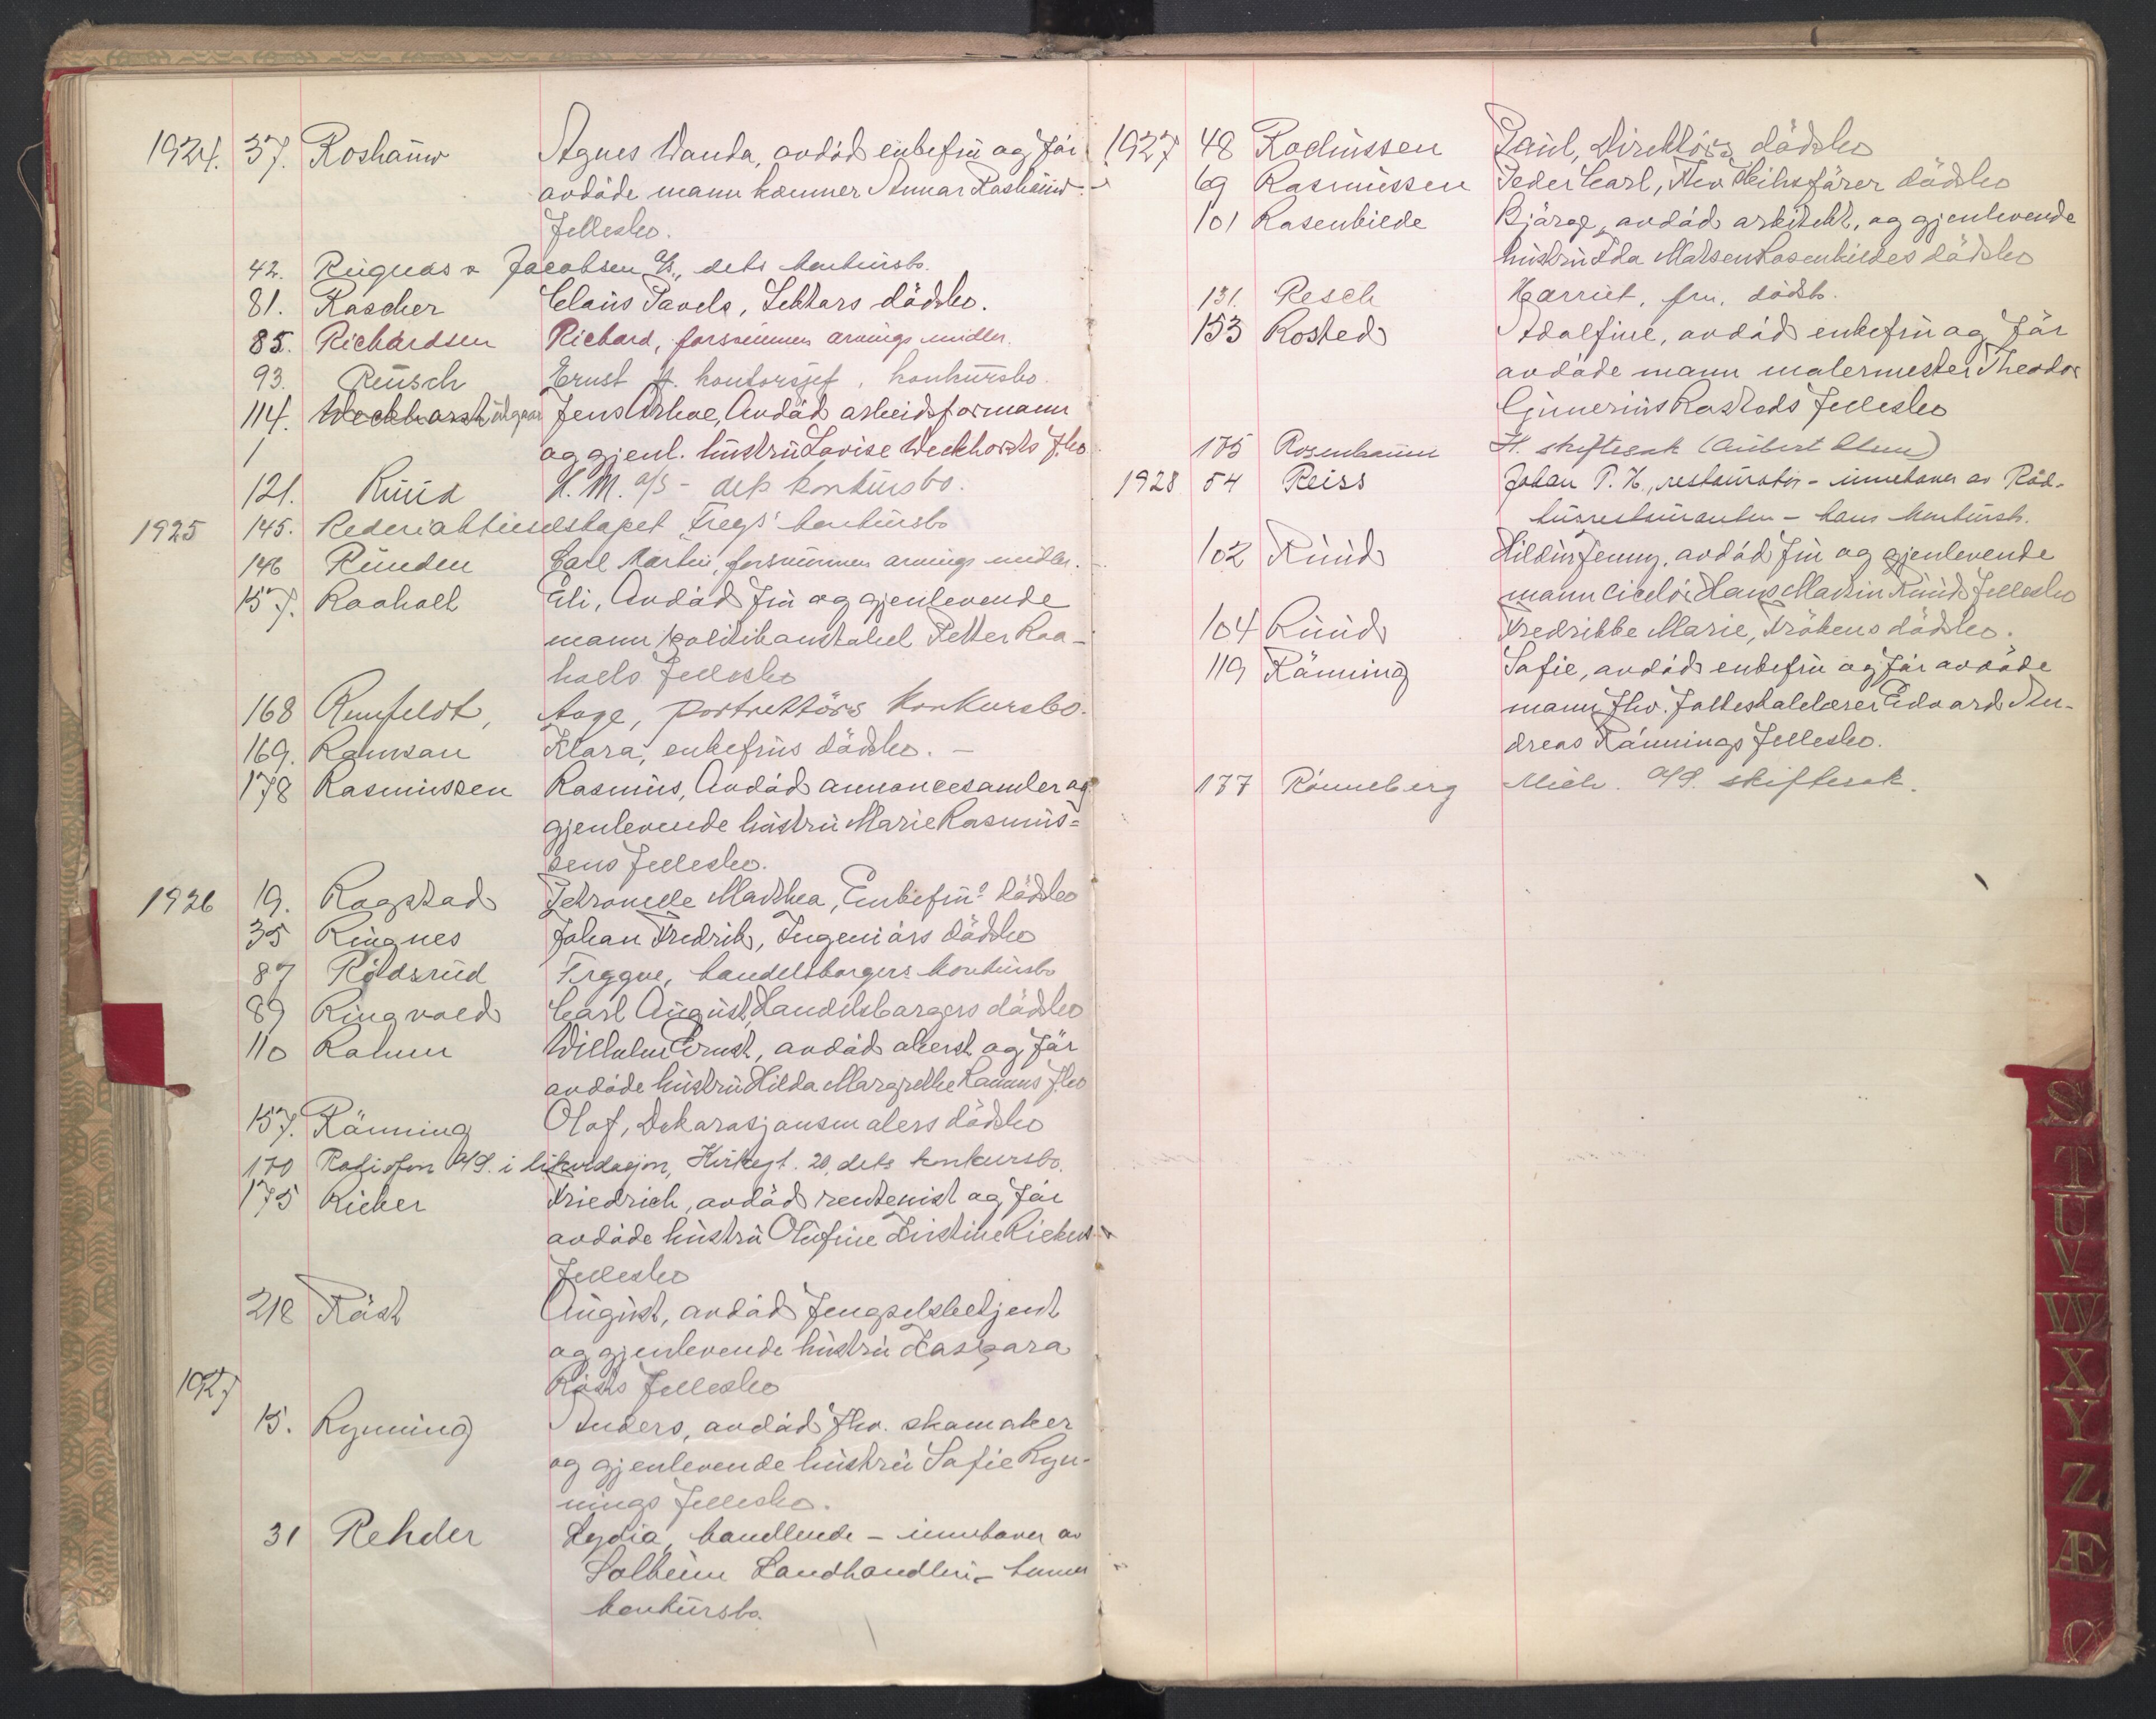 1924. 37. Roshauw Agnes Wanda, avdöd enkefru og för
avdöde mann kemner Annar Roshauw
Fellesbo.
42. Ringnes & Jacobsen A/S, dets konkursbo.
81. Rascher Claus Pavels, Lektors dödsbo.
85. Richardsen Richard, forsvunnen arvings midler.
93. Reusch Ernst A. kontorsjef, konkursbo.
114. Weckhorst utgaar Jens Arhoe, Avdöd arbeidsformann
og gjenl. hustru Lovise Weckhorsts f.bo
121. Ruud H. M. A/S - dets konkursbo.
1925 145. Rederiaktieselskapet "Fregs" konkursbo
146 Runden Carl Martin, forsvunnen arvings midler.
157. Raaholt Eli, Avdöd fru og gjenlevende
mann politikonstabel Petter Raa-
holts Fellesbo
168 Remfeldt, Aage, portrettörs konkursbo.
169. Ramsau Klara, enkefrus dödsbo. -
178 Rasmussen Rasmus, Avdöd annoncesamler og
gjenlevende hustru Marie Rasmus=
sens Fellesbo.
1926 19. Rogstad Petronelle Mathea, Enkefrus dödsbo
35 Ringnes Johan Fredrik, Ingeniörs dödsbo
87 Rödsrud Tryggve, handelsborgers konkursbo
89 Ringvold Carl August, Handelsborgers dödsbo
110 Ramm Wilhelm Ernst, avdöd oberst og för
avdöde hustru Hilda Margrethe Ramms f.bo
157. Rönning Olof, Dekorasjonsmalers dödsbo
170 Rafiston A/S. i likvidasjon, Kirkegt. 20, dets konkursbo.
175 Rieker Friedrich, avdöd rentenist og för
avdöde hustru Olufine Kirstine Riekers
Fellesbo
218 Röst August, avdöd fengselsbetjent
og gjenlevende hustru Kaspara
Rösts Fellesbo
1927
15. Rynning Anders, avdöd fhv. skomaker
og gjenlevende hustru Sofie Ryn-
nings Fellesbo.
31 Rehder Lydia, handlende - innehaver av
Solheim Landhandleri - hennes
konkursbo.
1927 48 Rasmussen Paul, Direktörs dödsbo
69 Rasmussen Peder Carl, Fhv. Skibsförer dödsbo
101 Rosenkilde Bjarne, avdöd arkitekt, og gjenlevende
hustru Ida Madsen Rosenkildes dödsbo
131. Resch Harriet, fru, dödsb.
153 Rosted Adolfine, avdöd enkefru og för
avdöde mann malermester Theodor
Gunerius Rosteds Fellesbo
175 Rosenbaum H. skiftesak (Aubert Clem)
1928 54 Reiss Johan P. H., restauratör - innehaver av Råd-
husrestauranten - hans konkursb.
102 Ruud Hildur Jenny, avdöd fru og gjenlevende
mann ciselör Hans Martin Ruuds Fellesbo
104 Ruud Fredrikke Marie, Frökens dödsbo.
119 Rönning Sofie, avdöd enkefru og för avdöde
mann fhv. folkeskolelærer Edvard An-
dreas Rönnings Fellesbo.
177 Rönneberg Mich. A/S. skiftesak.
S
T
U
V
W
X
Y
Z
Æ
Ø